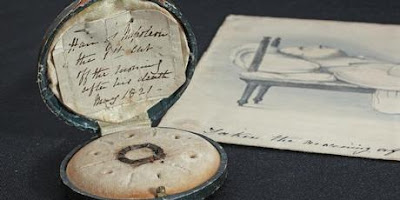 Hair of Napoleon
the 1st cut
off the morning
after his death
May 1821
Taken the morning af